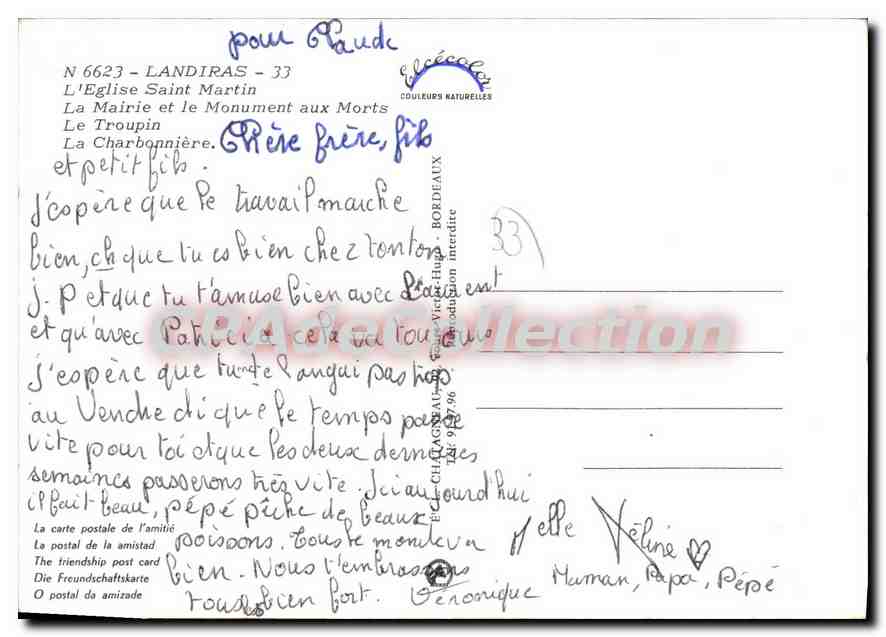 pour Claude
N 6623 - LANDIRAS - 33
L'Eglise Saint Martin
La Mairie et le Monument aux Morts
Le Troupin
La Charbonnière.
Elcécolor
COULEURS NATURELLES
Chère frère, fils
et petit fils.
j'espère que le travail marche
bien, et que tu es bien chez tonton
j. P et que tu t'amuse bien avec Laurent
et qu'avec Patricia cela va toujours
j'espère que tu te langui pas trop
au Vendredi que le temps passe
vite pour toi et que les deux dernières
semaines passerons très vite. Ici aujourd'hui
il fait beau, pépé pêche de beaux
poissons. Tous te monde va
bien. Nous t'embrassons
tous bien fort. Véronique
Maman, Papa, Pépé
33
BORDEAUX
Reproduction interdite
La carte postale de l'amitié
La postal de la amistad
The friendship post card
Die Freundschaftskarte
O postal da amizade
CPAdeCollection